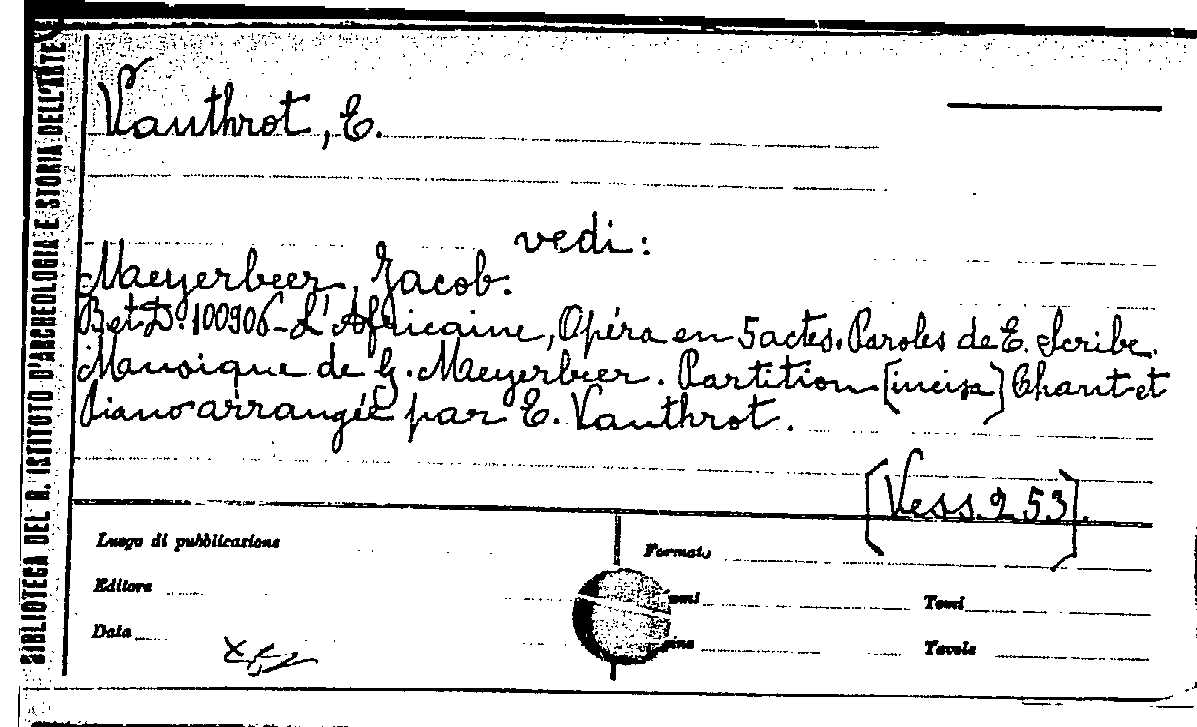 BIBLIOTECA DEL R. ISTITUTO D'ARCHEOLOGIA E STORIA DELL'ARTE
Vauthrot, E.
vedi:
Maeyerbeer, Jacob.
B et D. 100906 - L'Africaine, Opéra en 5 actes. Paroles de E. Scribe.
Mausique de G. Maeyerbeer. Partition [incisa] Chant et
Piano arrangée par E. Vauthrot.
[Vess. 253].
Luogo di pubblicazione
Formato
Editore
Tomi
Data
Tavole